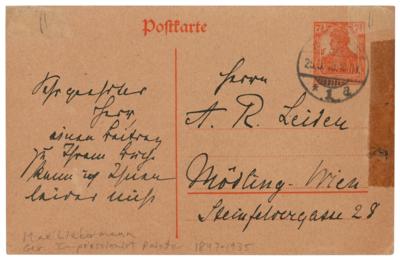 Postkarte
7½ 7½
* 1 a
Sehr geehrter
Herr
einen Beitrag
zu Ihrem Buch
kann ich Ihnen
leider nicht
Herrn
A. R. Leiden
Mödling-Wien
Steinfeldergasse 28
Max Liebermann
Ger. Impressionist Painter 1847-1935